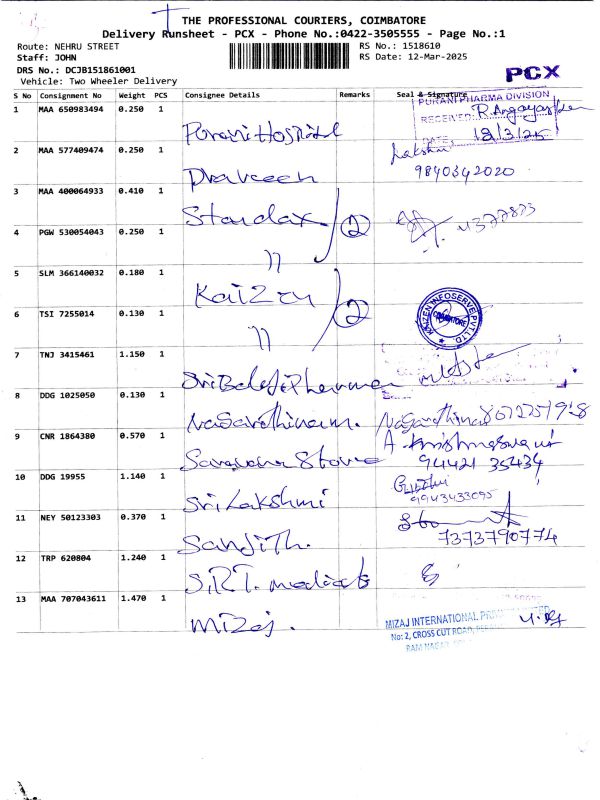 THE PROFESSIONAL COURIERS, COIMBATORE
Delivery Runsheet - PCX - Phone No.:0422-3505555 - Page No.:1
Route: NEHRU STREET RS No.: 1518610
Staff: JOHN RS Date: 12-Mar-2025
DRS No.: DCJB151861001
Vehicle: Two Wheeler Delivery
PCX
S No Consignment No Weight PCS Consignee Details Remarks Seal & Signature
PURANI PHARMA DIVISION
1 MAA 650983494 0.250 1 Purani Hospital RECEIVED:
DATE: 12/3/25
2 MAA 577409474 0.250 1 Praveen Lakshmi
9840342020
3 MAA 400064933 0.410 1 Standax 2
4 PGW 530054043 0.250 1 "
5 SLM 366140032 0.180 1 Kaizen 2 KAIZEN INFOSERVE PVT. LTD. COIMBATORE
6 TSI 7255014 0.130 1 "
7 TNJ 3415461 1.150 1 Sri Balaji Pharma
8 DDG 1025050 0.130 1 Nagarathinam.
9 CNR 1864380 0.570 1 Saravana Store A-Krishnaswami
94421 35434
10 DDG 19955 1.140 1 Sri Lakshmi
9943433095
11 NEY 50123303 0.370 1 Sanjith.
7373790774
12 TRP 620804 1.240 1 S.R.T. medicals
13 MAA 707043611 1.470 1 Mizaj. MIZAJ INTERNATIONAL
No: 2, CROSS CUT ROAD,
RAM NAGAR